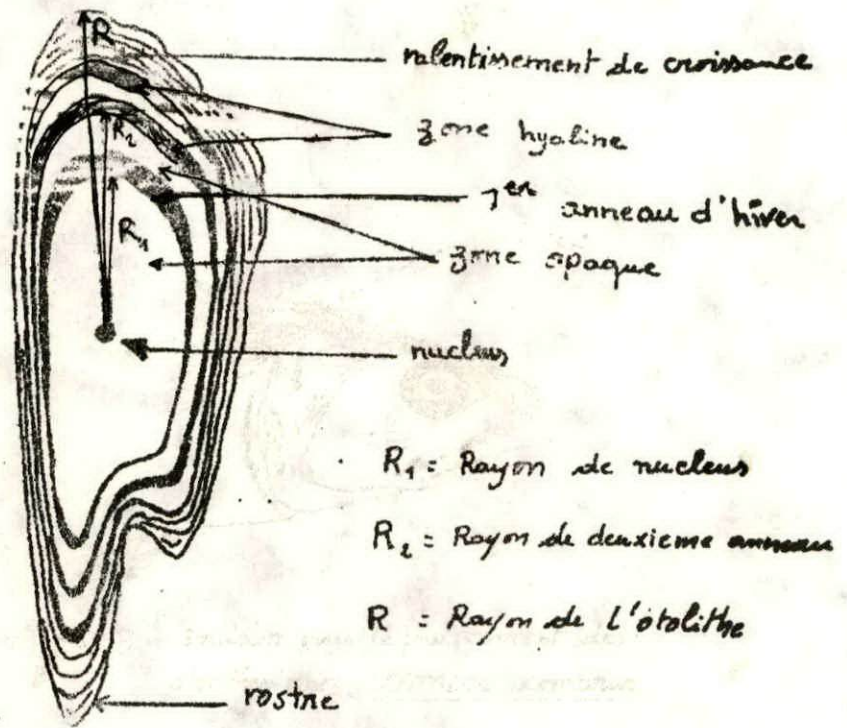 R
ralentissement de croissance
zone hyaline
R2
1er anneau d'hiver
R1
zone opaque
nucleus
R1 = Rayon de nucleus
R2 = Rayon de deuxieme anneau
R = Rayon de L'otolithe
rostre